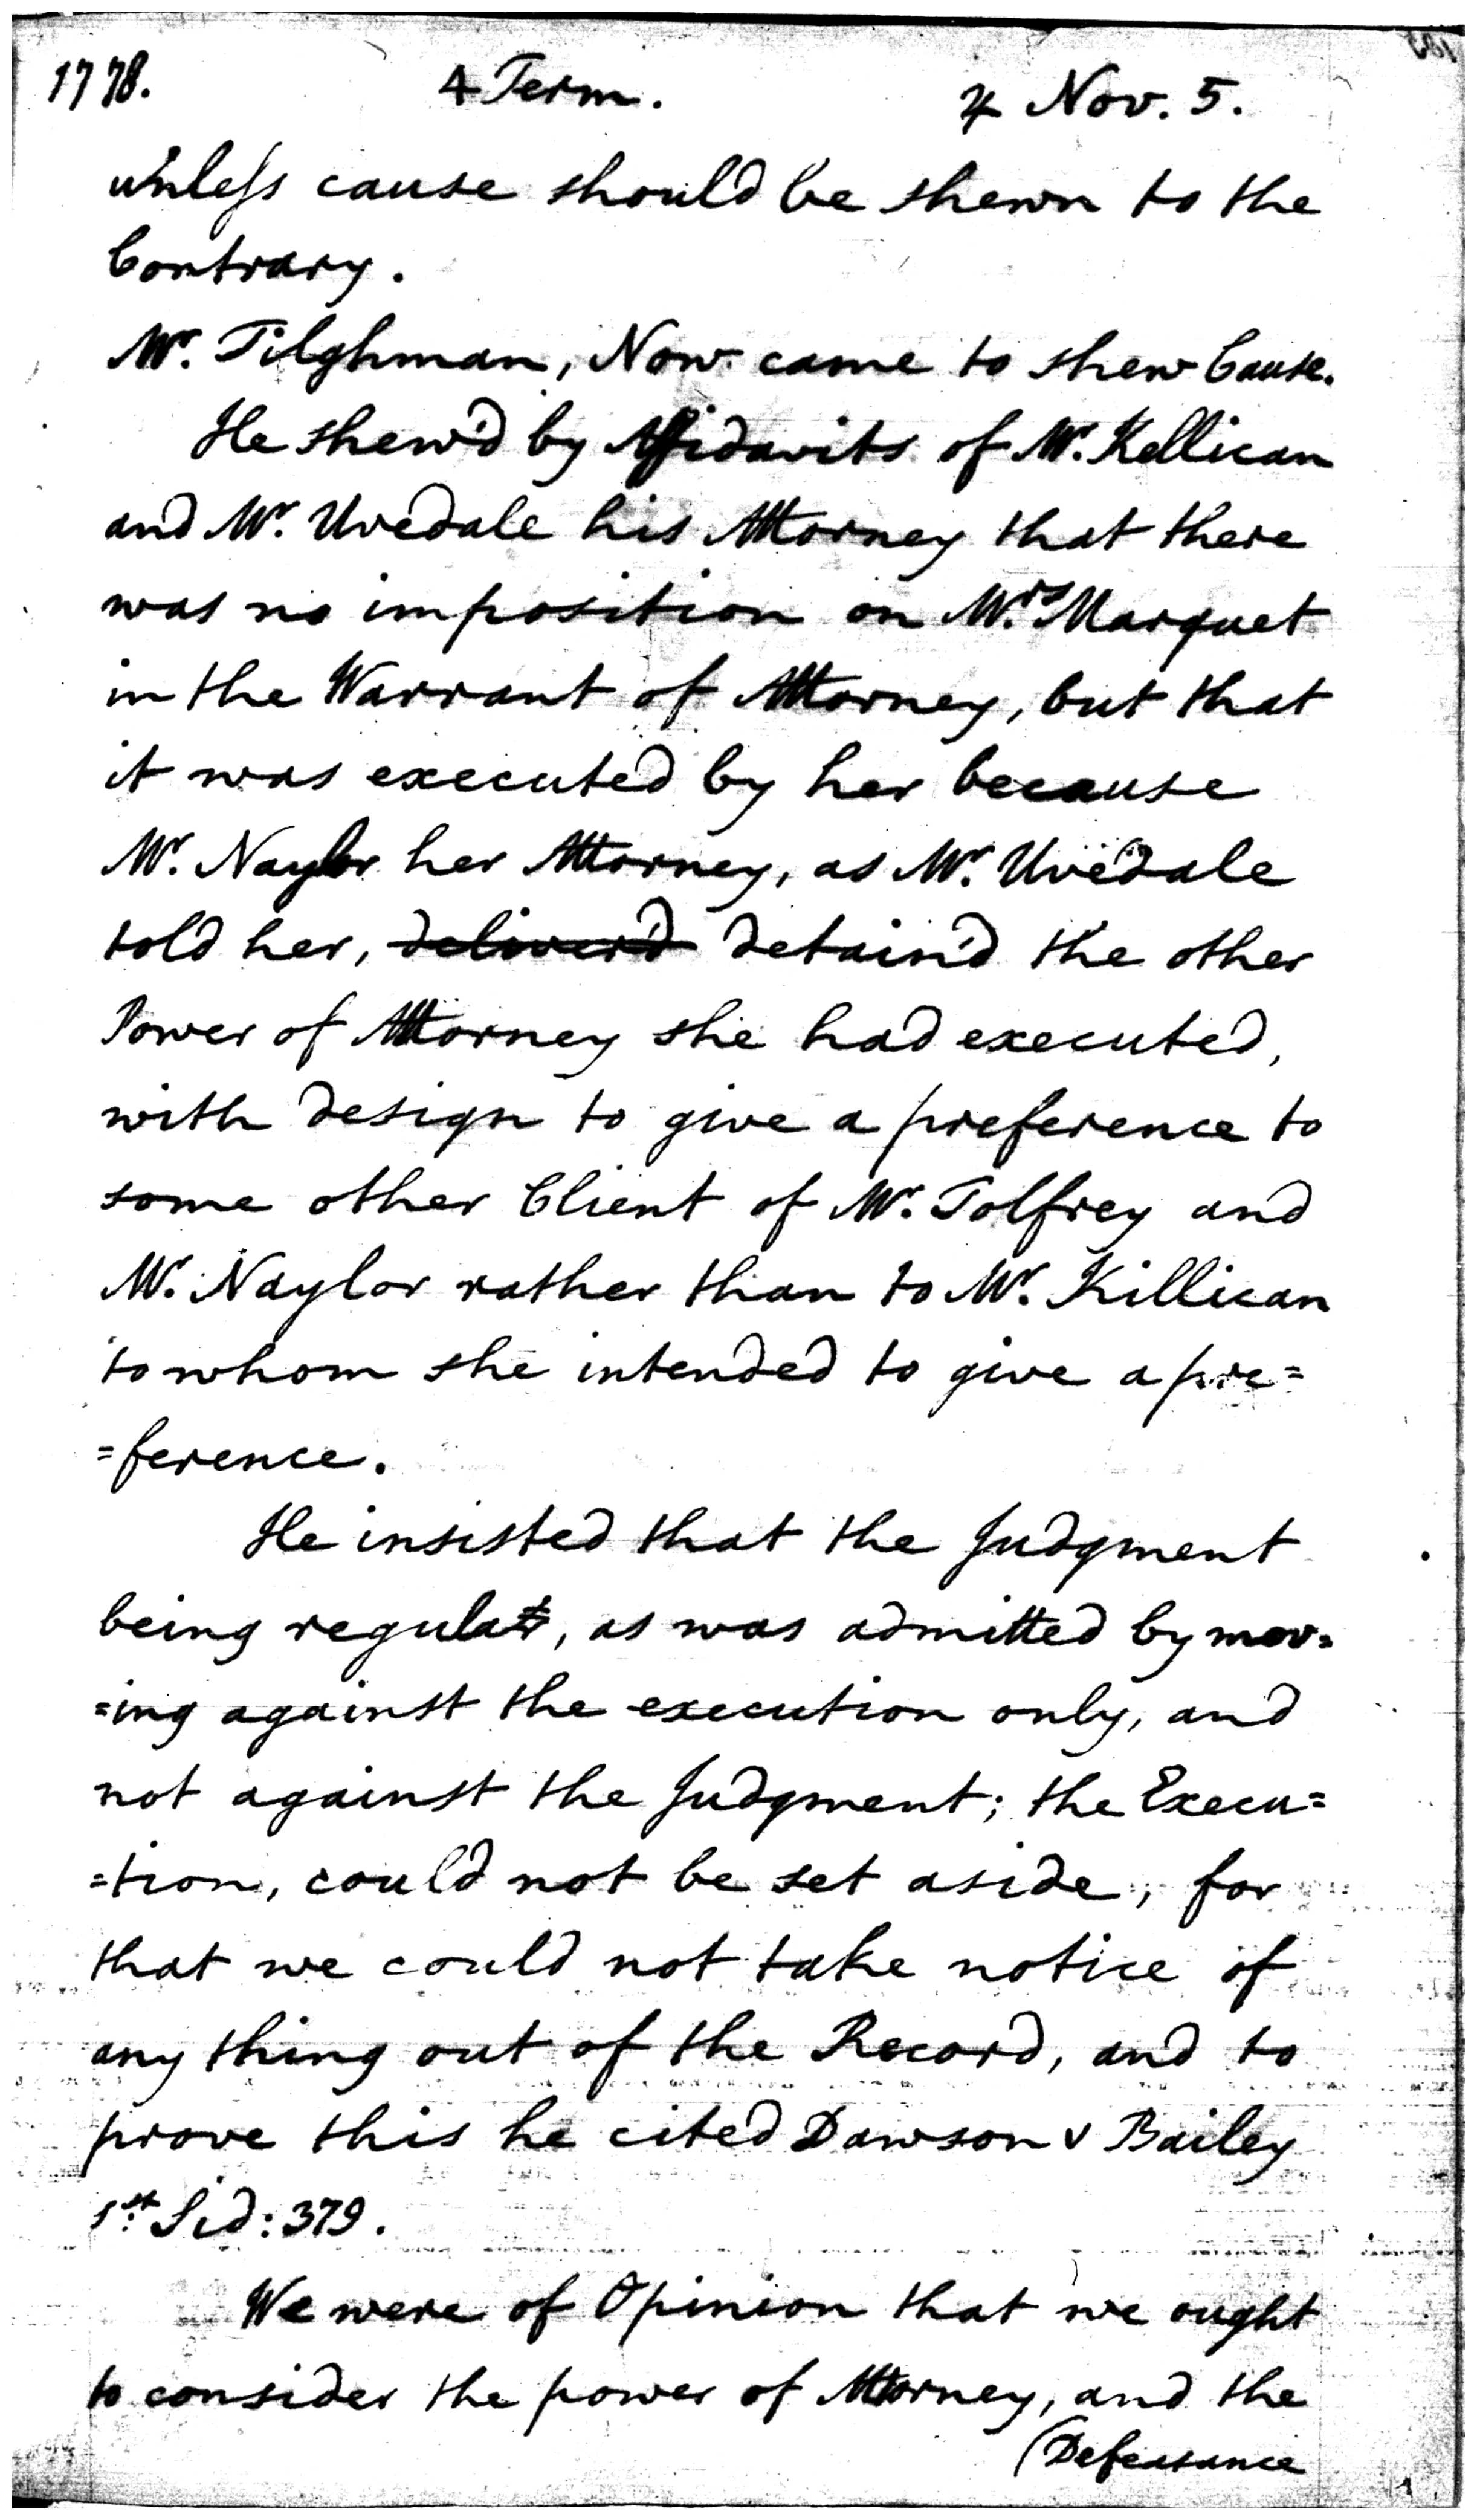 1778. 4 Term. ♃ Nov. 5.
unless cause should be shewn to the
Contrary.
Mr. Tilghman, Now came to shew Cause.
He shew'd by Affidavits of Mr. Kellican
and Mr. Uvedale his Attorney that there
was no imposition on Mrs. Marquet
in the Warrant of Attorney, but that
it was executed by her because
Mr. Naylor her Attorney, as Mr. Uvedale
told her, deliver'd detain'd the other
Power of Attorney she had executed,
with design to give a preference to
some other Client of Mr. Tolfrey and
Mr. Naylor rather than to Mr. Killican
to whom she intended to give a pre=
=ference.
He insisted that the Judgment
being regular, as was admitted by mov=
=ing against the execution only, and
not against the Judgment; the Execu=
=tion, could not be set aside, for
that we could not take notice of
any thing out of the Record, and to
prove this he cited Dawson v Bailey
1st. Sid: 379.
We were of Opinion that we ought
to consider the power of Attorney, and the
(Defeasance